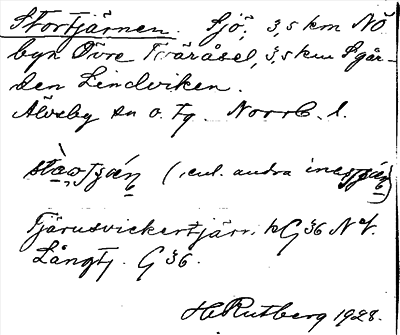 Stortjärnen. Sjö, 3,5 km NÖ
byn Övre Tväråsel, 3,5 km S går-
den Lindviken.
Älvsby sn o. tg. Norrb. l.
(enl. andra
Tjärusvickertjärn. hG 36 NV.
Långtj. G 36.
H. Rutberg 1928.